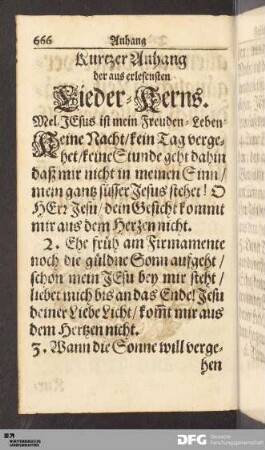 666 Anhang
Kurtzer Anhang
der aus erlesensten
Lieder-Kerns.
Mel. JEsus ist mein Freuden-Leben-
Keine Nacht/kein Tag verge-
het/keine Stunde geht dahin
daß mir nicht in meinen Sinn/
mein gantz süsser Jesus stehet! O
HErr Jesu/dein Gesicht kommt
mir aus dem Hertzen nicht.
2. Ehe früh am Firmamente
noch die güldne Sonn aufgeht/
schon mein JEsu bey mir steht/
liebet mich bis an das Ende! Jesu
deiner Liebe Licht/kom̃t mir aus
dem Hertzen nicht.
3. Wann die Sonne will verge-
hen
DFG